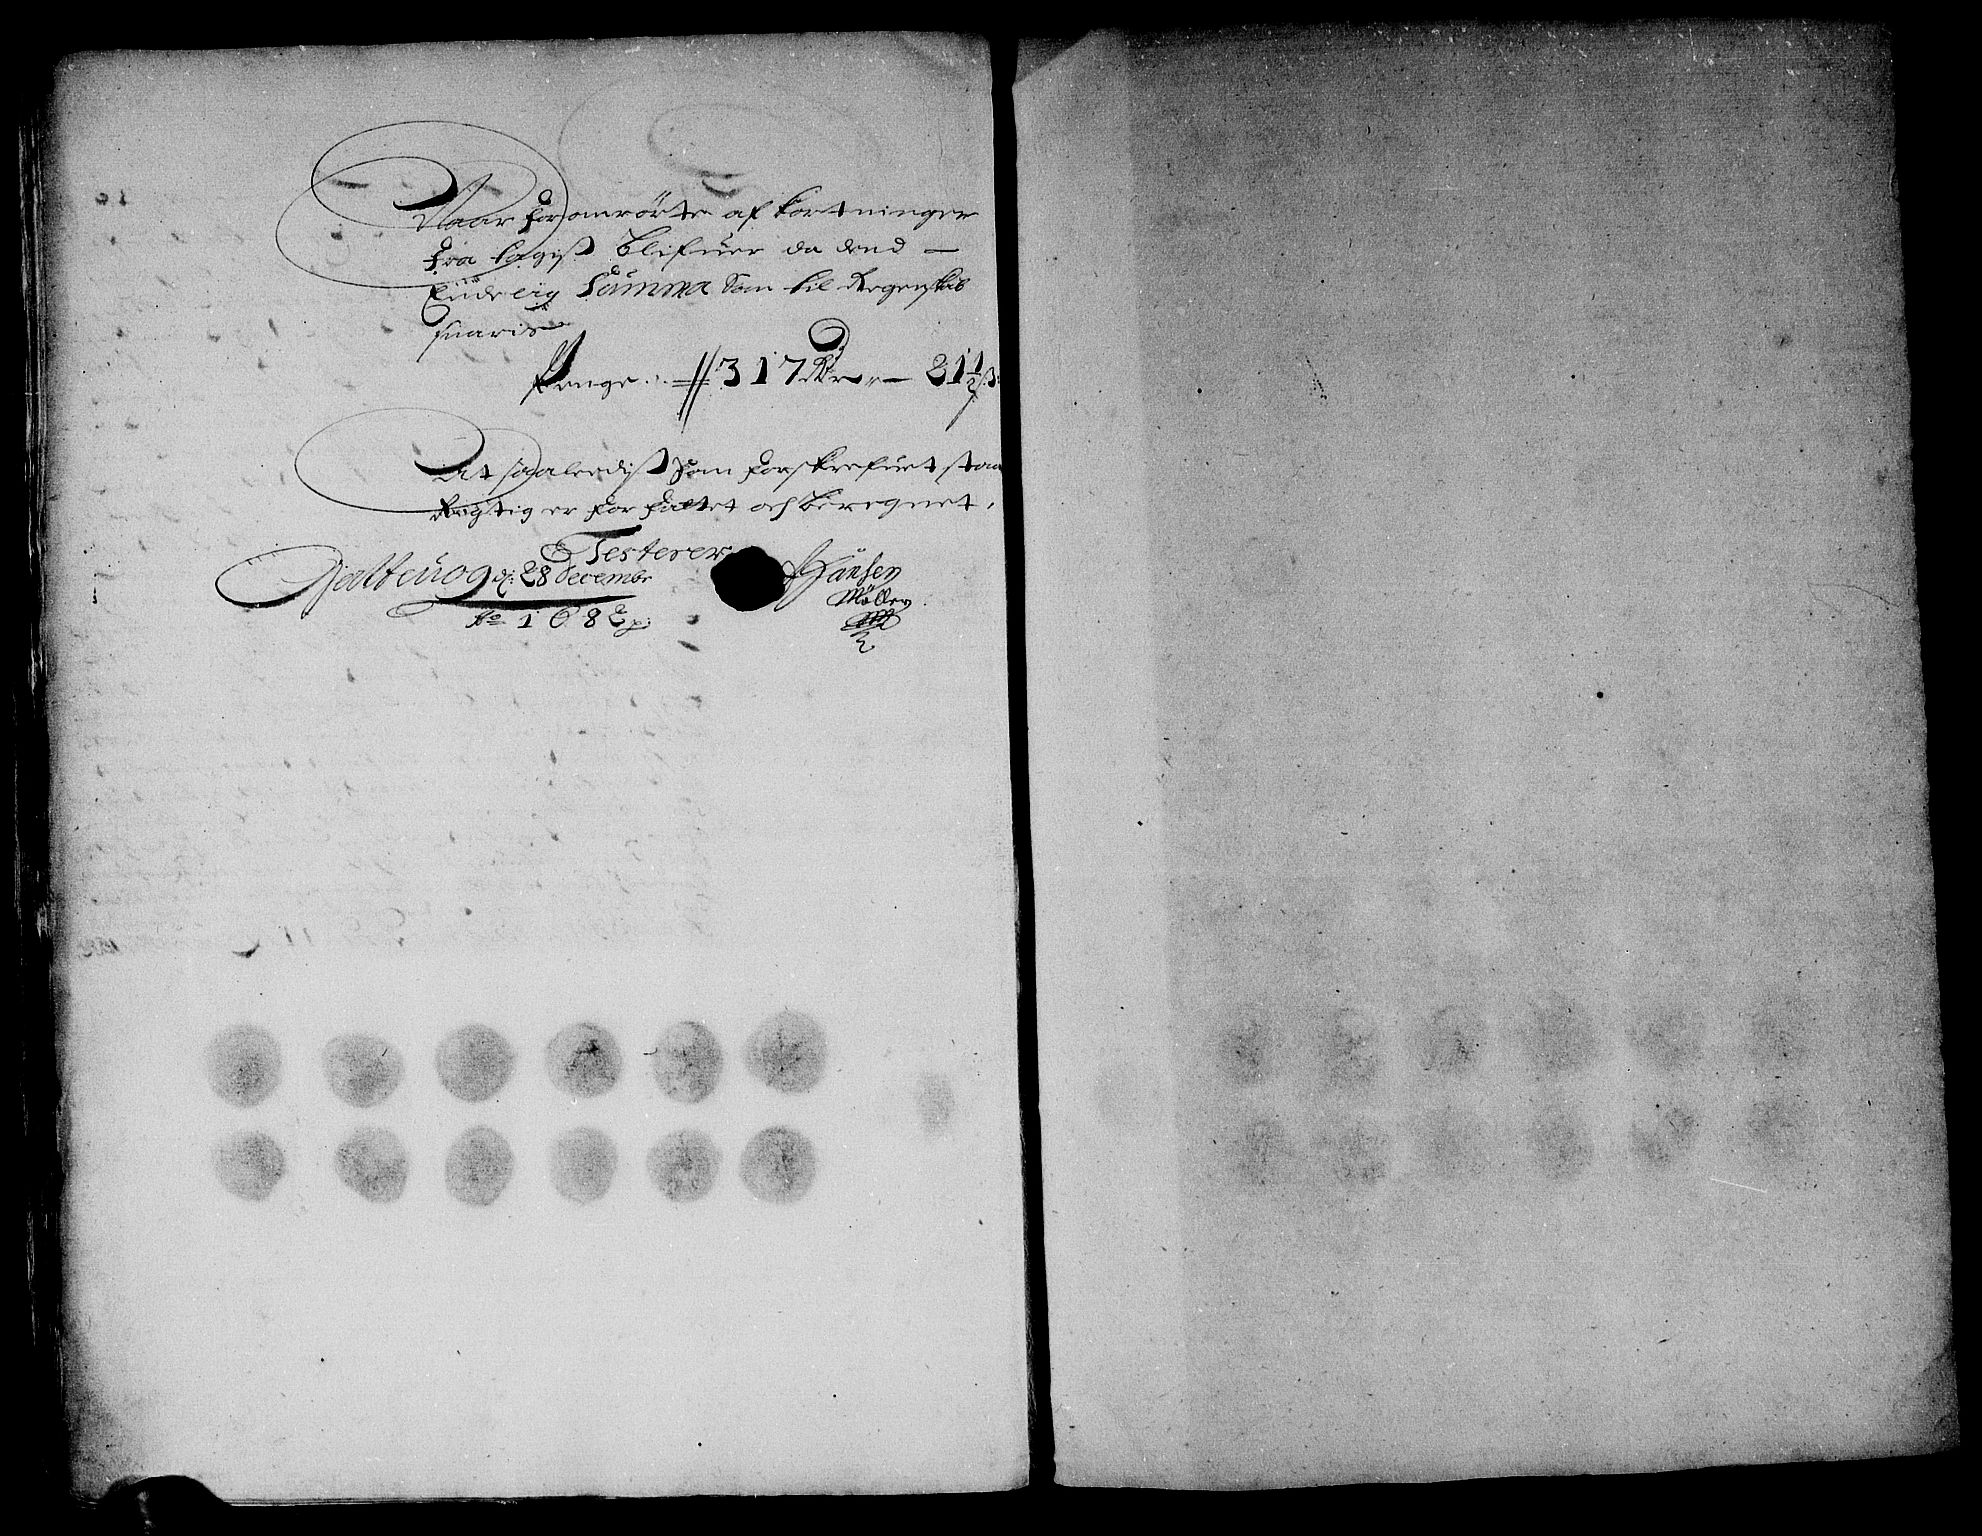 Naar foranrörte af kortninger
fra lagist Blifuer da dend —
Endelig Summa Som til Regenskab
suaris
Penge ... 317 Rdr — 21½ ß
At saaledist som forskrefuet staa
Rigtig er forfattet och beregnet,
Testerer
d: 28 decembr
Ao 1682
Hansen
Möller